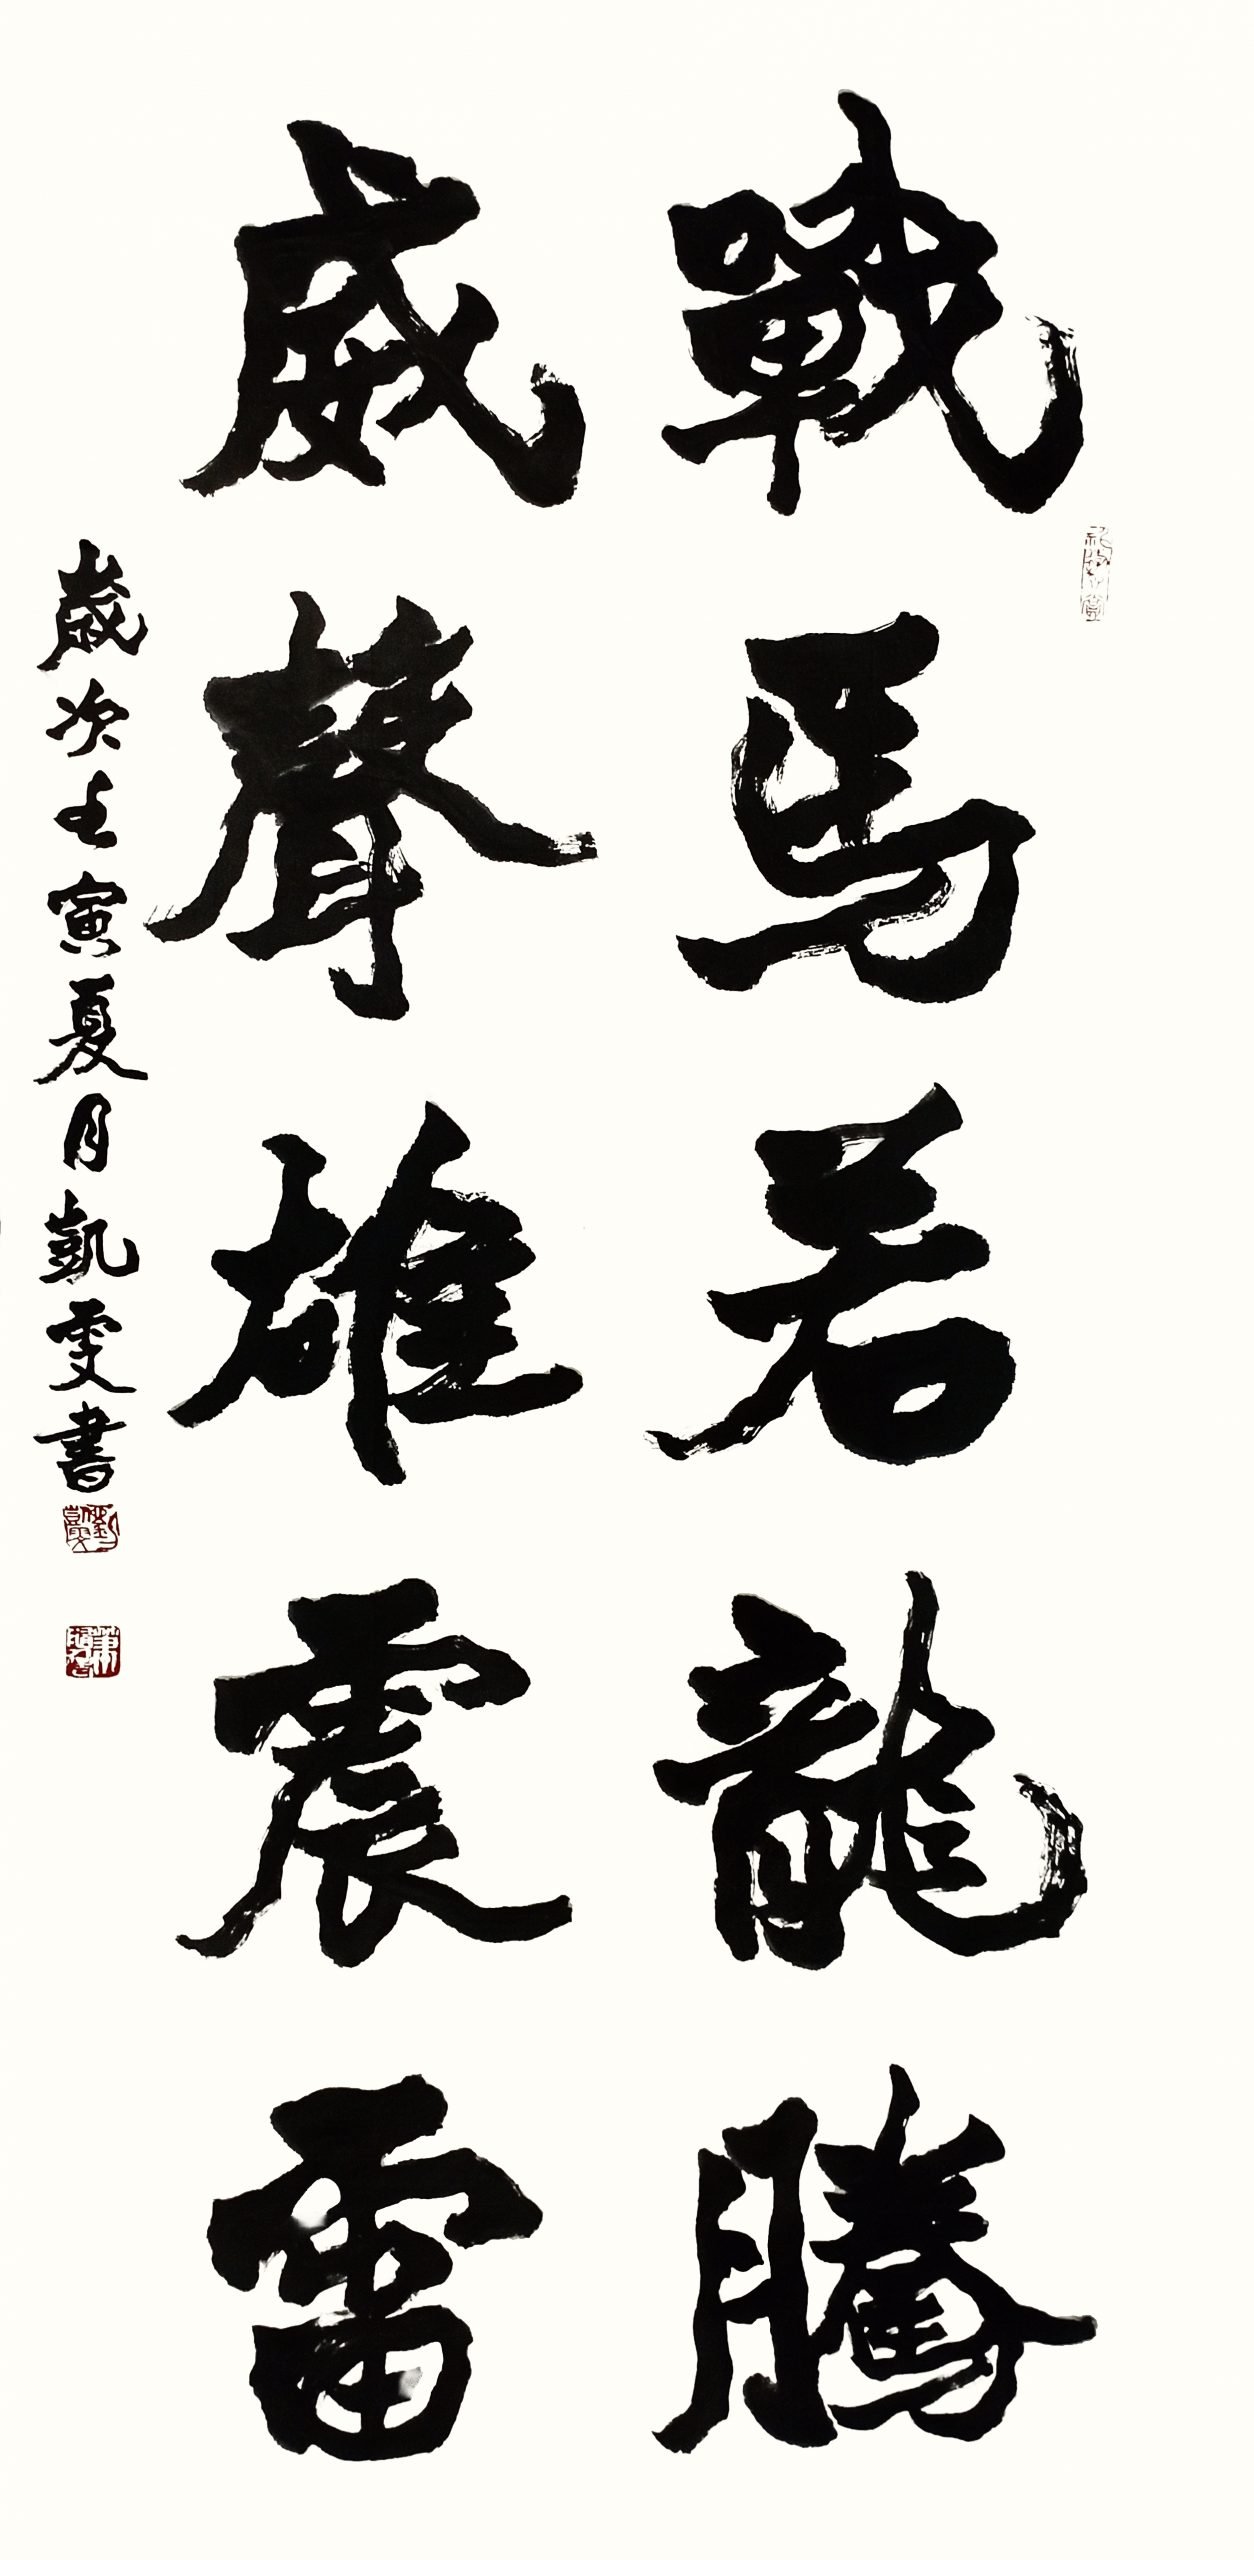 戰馬若龍騰
威聲雄震雷
歲次壬寅夏月凱雯書